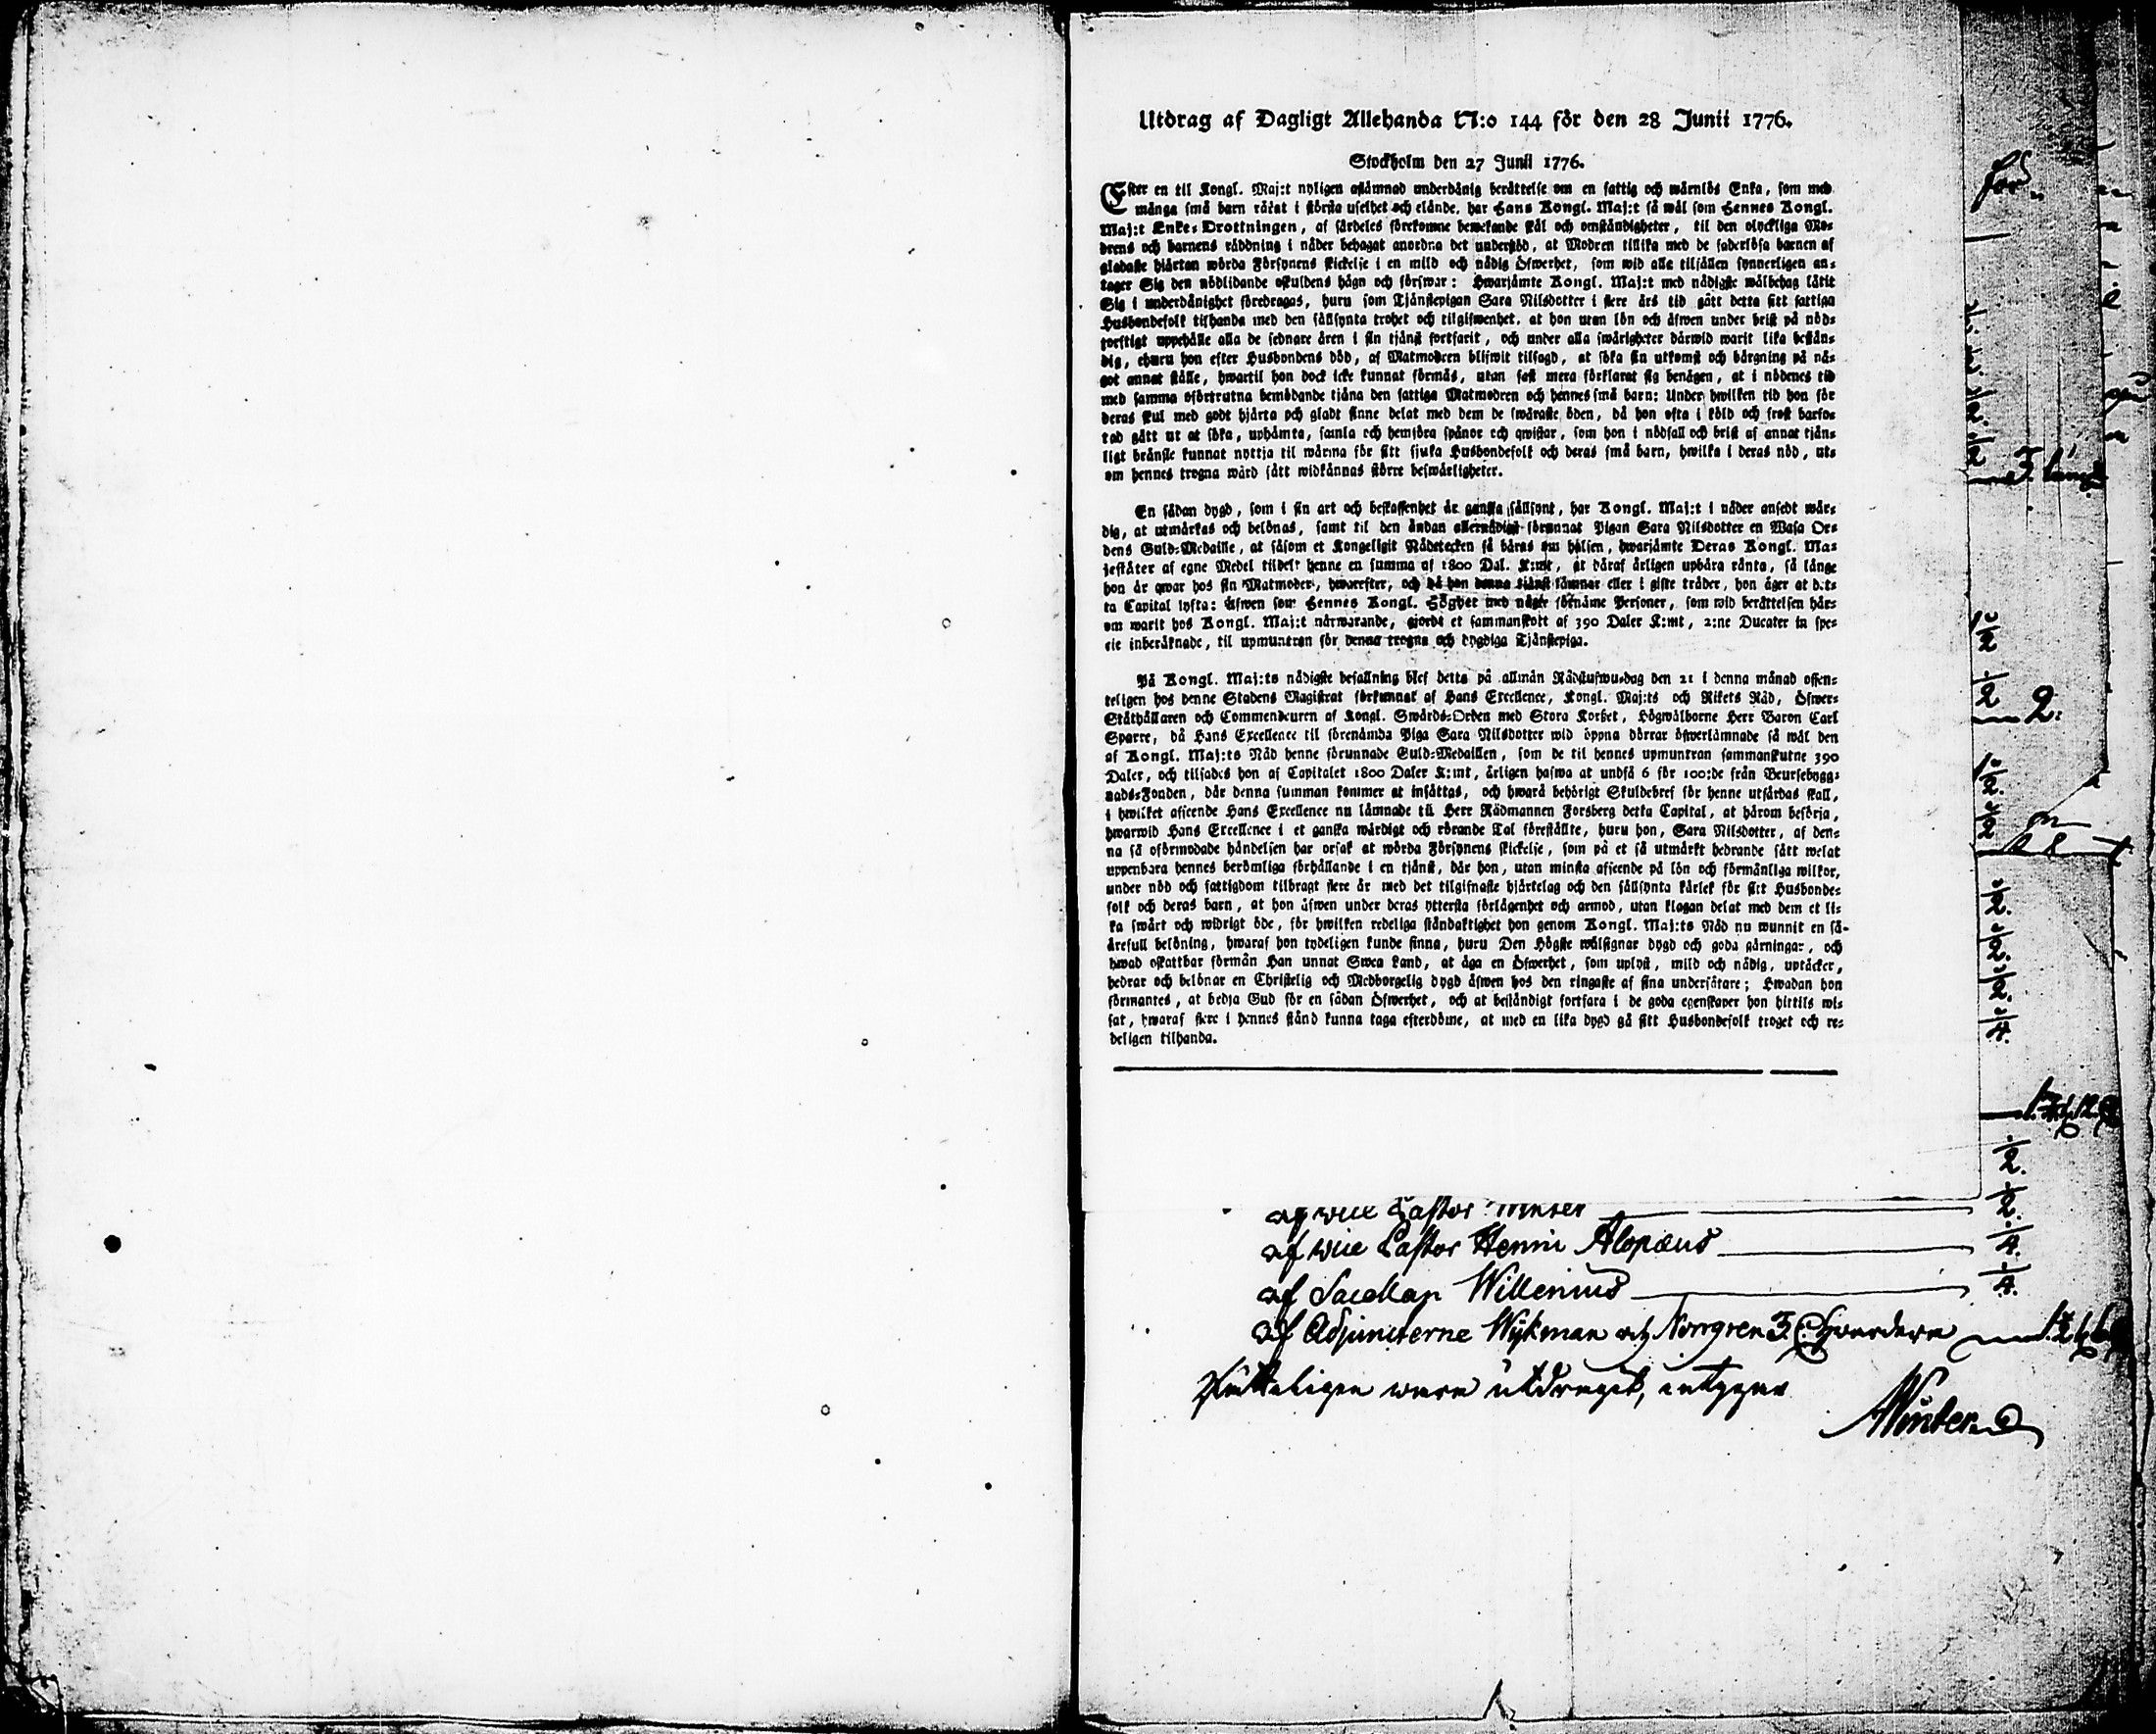 Utdrag af Dagligt Allehanda N:o 144 för den 28 Junii 1776.
Stockholm den 27 Junii 1776.
Efter en til Kongl. Maj:t nyligen aflämnad underdånig berättelse om en fattig och wärnlös Enka, som med
många små barn råkat i största uselhet och elände, har Hans Kongl. Maj:t så wäl som Hennes Kongl.
Maj:t Enke-Drottningen, af särdeles förekomne bewekande skäl och omständigheter, til den olyckliga Mo-
drens och barnens räddning i nåder behagat anordna det understöd, at Modren tillika med de faderlösa barnen af
gladaste hjärtan wörda Försynens skickelse i en mild och nådig Öfwerhet, som wid alla tilfällen synnerligen an-
tager Sig den nödlidande oskuldens hägn och förswar: Hwarjämte Kongl. Maj:t med nådigste wälbehag låtit
Sig i underdånighet föredragas, huru som Tjänstepigan Sara Nilsdotter i flere års tid gått detta sitt fattiga
Husbondefolk tilhanda med den sällsynta trohet och tilgifwenhet, at hon utan lön och äfwen under brist på nöd-
torftigt uppehälle alla de sednare åren i sin tjänst fortfarit, och under alla swårigheter därwid warit lika bestän-
dig, ehuru hon efter Husbondens död, af Matmodren blifwit tilsagd, at söka sin utkomst och bärgning på nå-
got annat ställe, hwartil hon dock icke kunnat förmås, utan fast mera förklarat sig benägen, at i nödenes tid
med samma oförtrutna bemödande tjäna den fattiga Matmodren och hennes små barn: Under hwilken tid hon för
deras skul med godt hjärta och gladt sinne delat med dem de swåraste öden, då hon ofta i köld och frost barfo-
tad gått ut at söka, uphämta, samla och hemföra spånor och qwistar, som hon i nödfall och brist af annat tjän-
ligt bränsle kunnat nyttja til wärma för sitt sjuka Husbondefolk och deras små barn, hwilka i deras nöd, ut-
om hennes trogna wård fått widkännas större beswärligheter.
En sådan dygd, som i sin art och beskaffenhet är ganska sällsynt, har Kongl. Maj:t i nåder ansedt wär-
dig, at utmärkas och belönas, samt til den ändan allernådigst förunnat Pigan Sara Nilsdotter en Wasa Or-
dens Guld-Medaille, at såsom et Kongeligit Nådetecken få bäras om halsen, hwarjämte Deras Kongl. Ma-
jestäter af egne Medel tildelt henne en summa af 1800 Dal. K:mt, at däraf årligen upbära ränta, så länge
hon är qwar hos sin Matmoder, hwarefter, och då hon denna tjänst lämnar eller i gifte träder, hon äger at det-
ta Capital lyfta: Äfwen som Hennes Kongl. Höghet med några förnäme Personer, som wid berättelsen här-
om warit hos Kongl. Maj:t närwarande, gjordt et sammanskott af 390 Daler K:mt, 2:ne Ducater in spe-
cie inberäknade, til upmuntran för denna trogna och dygdiga Tjänstepiga.
På Kongl. Maj:ts nådigste befallning blef detta på allmän Rådstufwu-dag den 21 i denna månad offen-
teligen hos denne Stadens Magistrat förkunnat af Hans Excellence, Kongl. Maj:ts och Rikets Råd, Öfwer-
Ståthållaren och Commendeuren af Kongl. Swärds-Orden med Stora Korset, Högwälborne Herr Baron Carl
Sparre, då Hans Excellence til förenämda Piga Sara Nilsdotter wid öppna dörrar öfwerlämnade så wäl den
af Kongl. Maj:ts Nåd henne förunnade Guld-Medaillen, som de til hennes upmuntran sammanskutne 390
Daler, och tilsades hon af Capitalet 1800 Daler K:mt, årligen hafwa at undfå 6 för 100:de från Beursebygg-
nads-Fonden, där denna summan kommer at insättas, och hwarå behörigt Skuldebref för henne utfärdas skall,
i hwilket afseende Hans Excellence nu lämnade til Herr Rådmannen Forsberg detta Capital, at härom besörja,
hwarwid Hans Excellence i et ganska wärdigt och rörande Tal föreställte, huru hon, Sara Nilsdotter, af den-
na så oförmodade händelsen har orsak at wörda Försynens skickelse, som på et så utmärkt hedrande sätt welat
uppenbara hennes berömliga förhållande i en tjänst, där hon, utan minsta afseende på lön och förmånliga wilkor,
under nöd och fattigdom tilbragt flere år med det tilgifnaste hjärtelag och den sällsynta kärlek för sitt Husbonde-
folk och deras barn, at hon äfwen under deras yttersta förlägenhet och armod, utan klagan delat med dem et li-
ka swårt och widrigt öde, för hwilken redeliga ståndaktighet hon genom Kongl. Maj:ts Nåd nu wunnit en så
ärefull belöning, hwaraf hon tydeligen kunde finna, huru Den Högste wälsignar dygd och goda gärningar, och
hwad oskattbar förmån Han unnat Swea Land, at äga en Öfwerhet, som uplyst, mild och nådig, uptäcker,
hedrar och belönar en Christelig och Medborgelig dygd äfwen hos den ringaste af sina undersåtare; Hwadan hon
förmantes, at bedja Gud för en sådan Öfwerhet, och at beständigt fortfara i de goda egenskaper hon hittils wi-
sat, hwaraf flere i hennes stånd kunna taga efterdöme, at med en lika dygd gå sitt Husbondefolk troget och re-
deligen tilhanda.
af wice Pastor
af wice Pastor Henric Alopæus 1/4.
af Sacellan Willenius 1/4.
af Adjuncterne Wijkman och Norrgren
utdraget, intygar
Winter